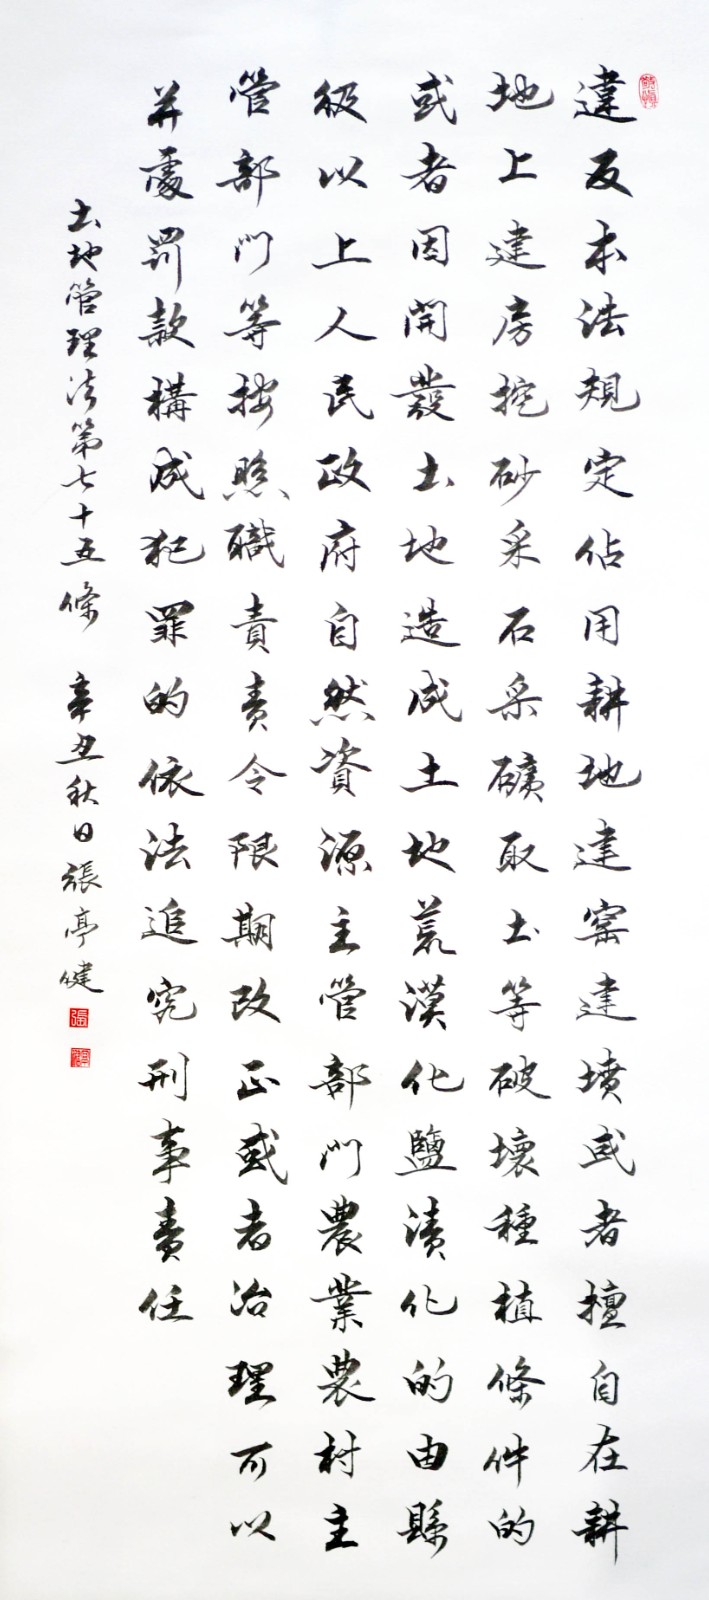 違反本法規定佔用耕地建窑建墳或者擅自在耕
地上建房挖砂采石采礦取土等破壞種植條件的
或者因開發土地造成土地荒漠化鹽漬化的由縣
級以上人民政府自然資源主管部門農業農村主
管部門等按照職責責令限期改正或者治理可以
并處罰款構成犯罪的依法追究刑事責任
土地管理法第七十五條 辛丑秋日張亭健